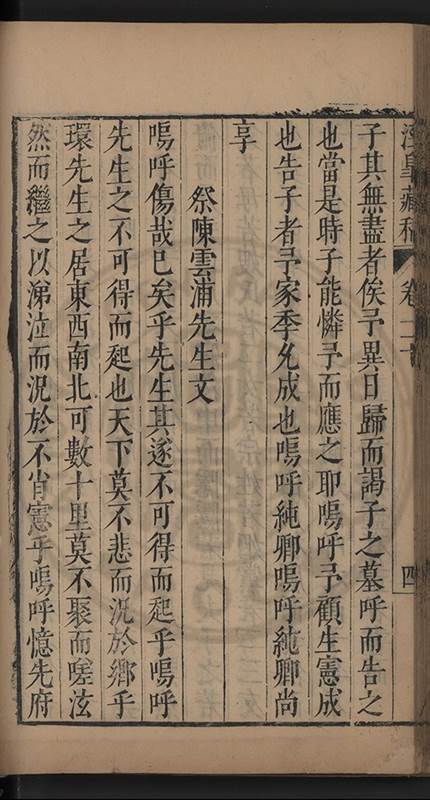 涇皐藏稿 卷二十 四
子其無盡者俟予異日歸而謁子之墓呼而告之
也當是時子能憐予而應之耶嗚呼予顧生憲成
也告子者予家季允成也嗚呼純卿嗚呼純卿尚
享
祭陳雲浦先生文
嗚呼傷哉已矣乎先生其遂不可得而起乎嗚呼
先生之不可得而起也天下莫不悲而況於鄉乎
環先生之居東西南北可數十里莫不聚而嗟泫
然而繼之以涕泣而況於不肖憲乎嗚呼憶先府